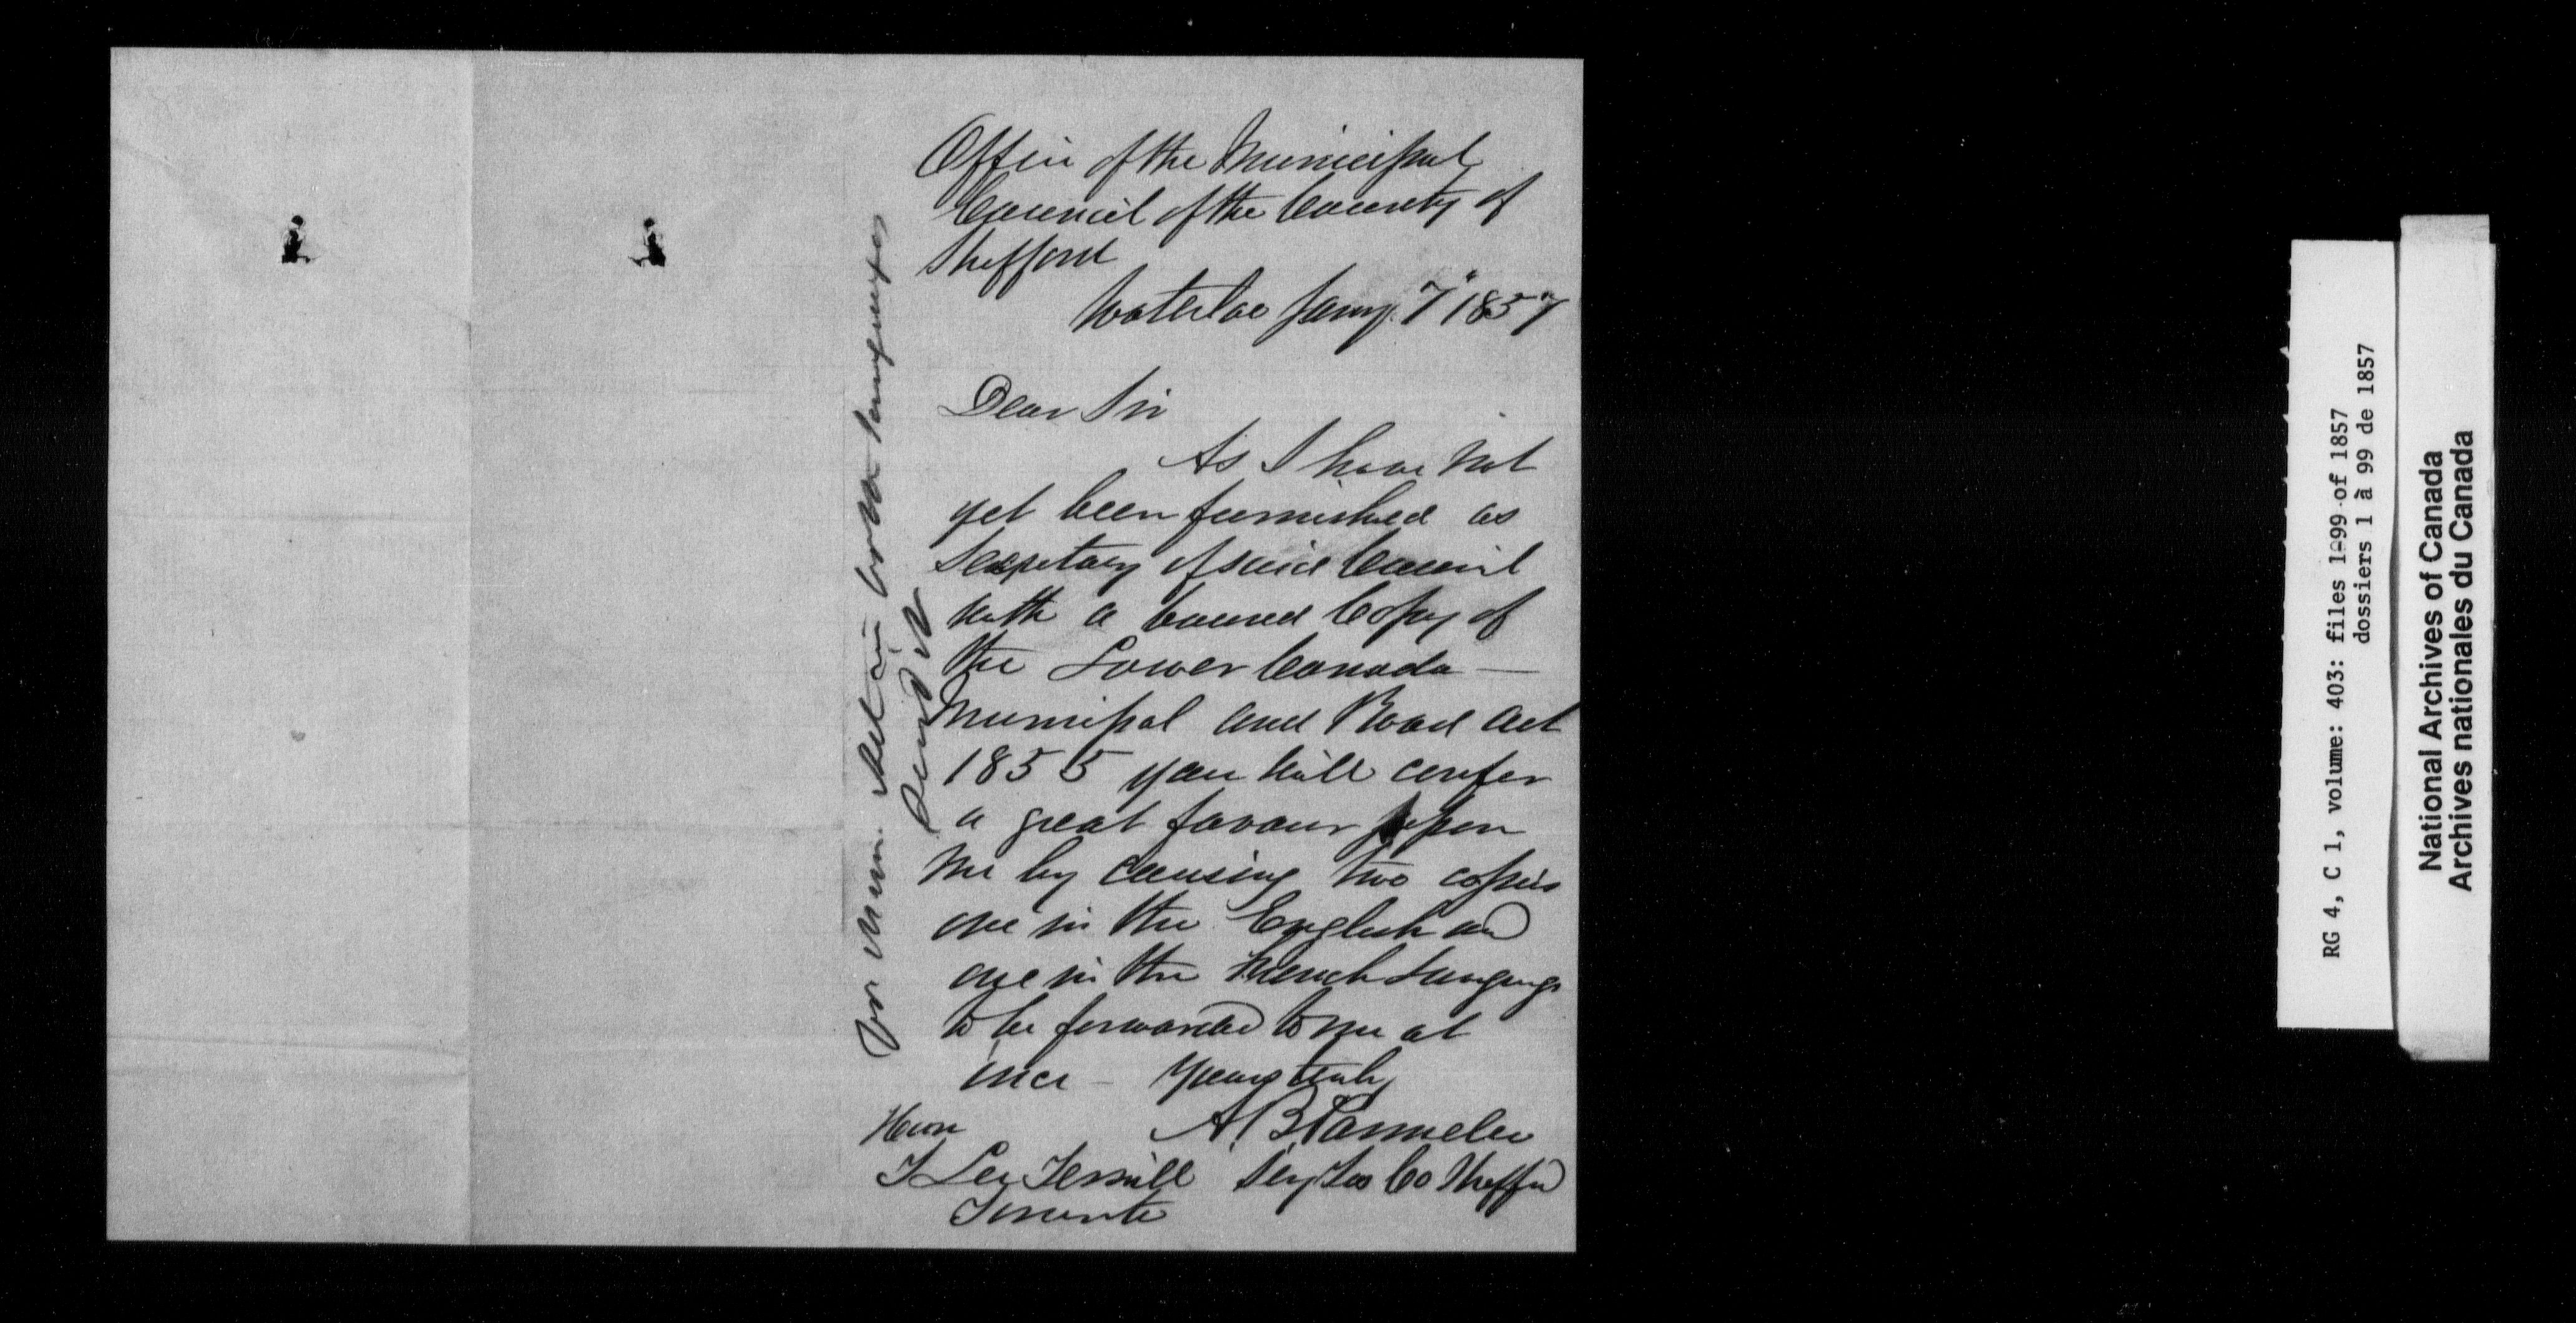 Office of the Municipal
Council of the County of
Shefford
Waterloo Jany. 7" 1857
Dear Sir
As I have not
yet been furnished as
Secretary of said Council
with a bound Copy of
the Lower Canada —
Municipal and Road Act
1855 you will confer
a great favour upon
me by causing two copies
one in the English and
one in the French Language
to be forwarded to me at
once – Yours truly
A. B. Parmelee
Honr
T Lee Terrill Secy Tres Co Sheffd
Toronto
for Mun. Act in both languages
Send it
RG 4, C 1, volume: 403: files 1-99 of 1857
dossiers 1 à 99 de 1857
National Archives of Canada
Archives nationales du Canada